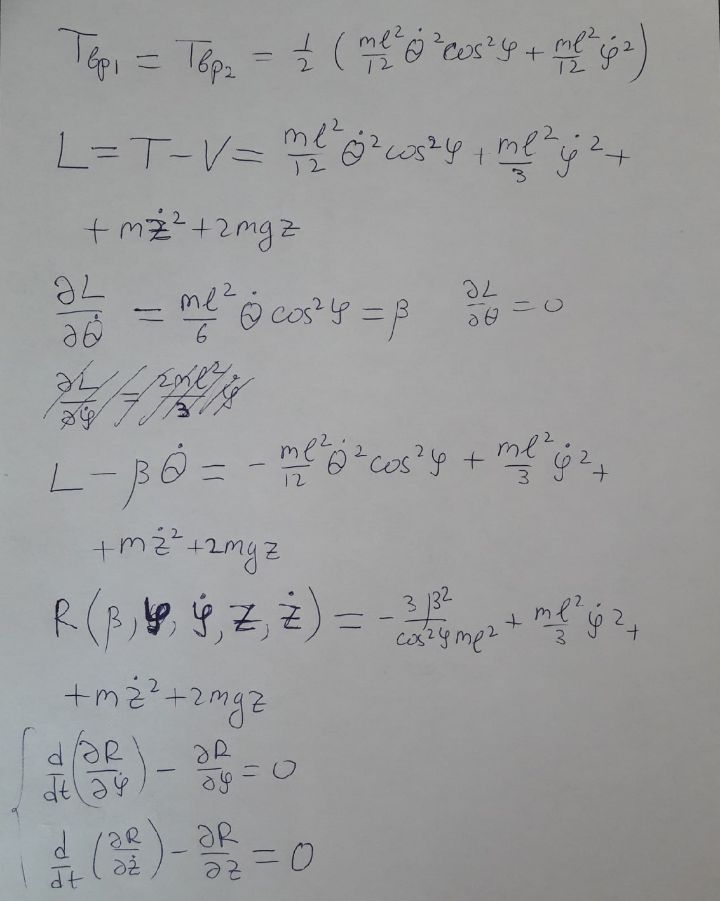 Tвр₁ = Tвр₂ = 1/2 ( mℓ²/12 θ̇² cos²φ + mℓ²/12 φ̇² )
L = T − V = mℓ²/12 θ̇² cos²φ + mℓ²/3 φ̇² +
+ mż² + 2mgz
∂L/∂θ̇ = mℓ²/6 θ̇ cos²φ = β ∂L/∂θ = 0
∂L/∂φ̇ = 2mℓ²/3 φ̇
L − βθ̇ = − mℓ²/12 θ̇² cos²φ + mℓ²/3 φ̇² +
+ mż² + 2mgz
R(β, φ, φ̇, z, ż) = − 3β²/cos²φ mℓ² + mℓ²/3 φ̇² +
+ mż² + 2mgz
d/dt (∂R/∂φ̇) − ∂R/∂φ = 0
d/dt (∂R/∂ż) − ∂R/∂z = 0